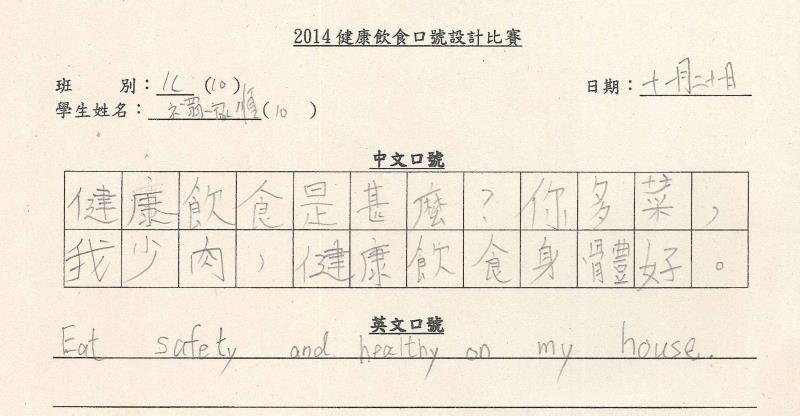 2014健康飲食口號設計比賽
班　　別：1L (10)　日期：十一月二十日
學生姓名：(10)
中文口號
健康飲食是甚麼？你多菜，
我少肉，健康飲食身體好。
英文口號
Eat safety and healthy on my house.